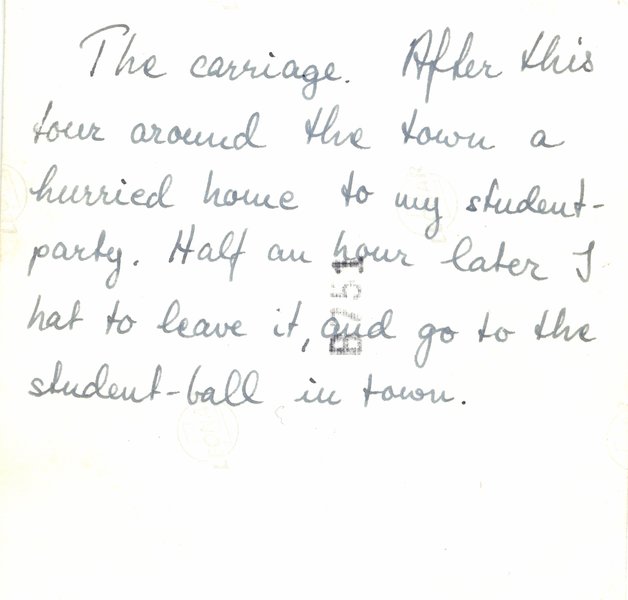 The carriage. After this
tour around the town a
hurried home to my student-
party. Half an hour later I
hat to leave it, and go to the
student-ball in town.